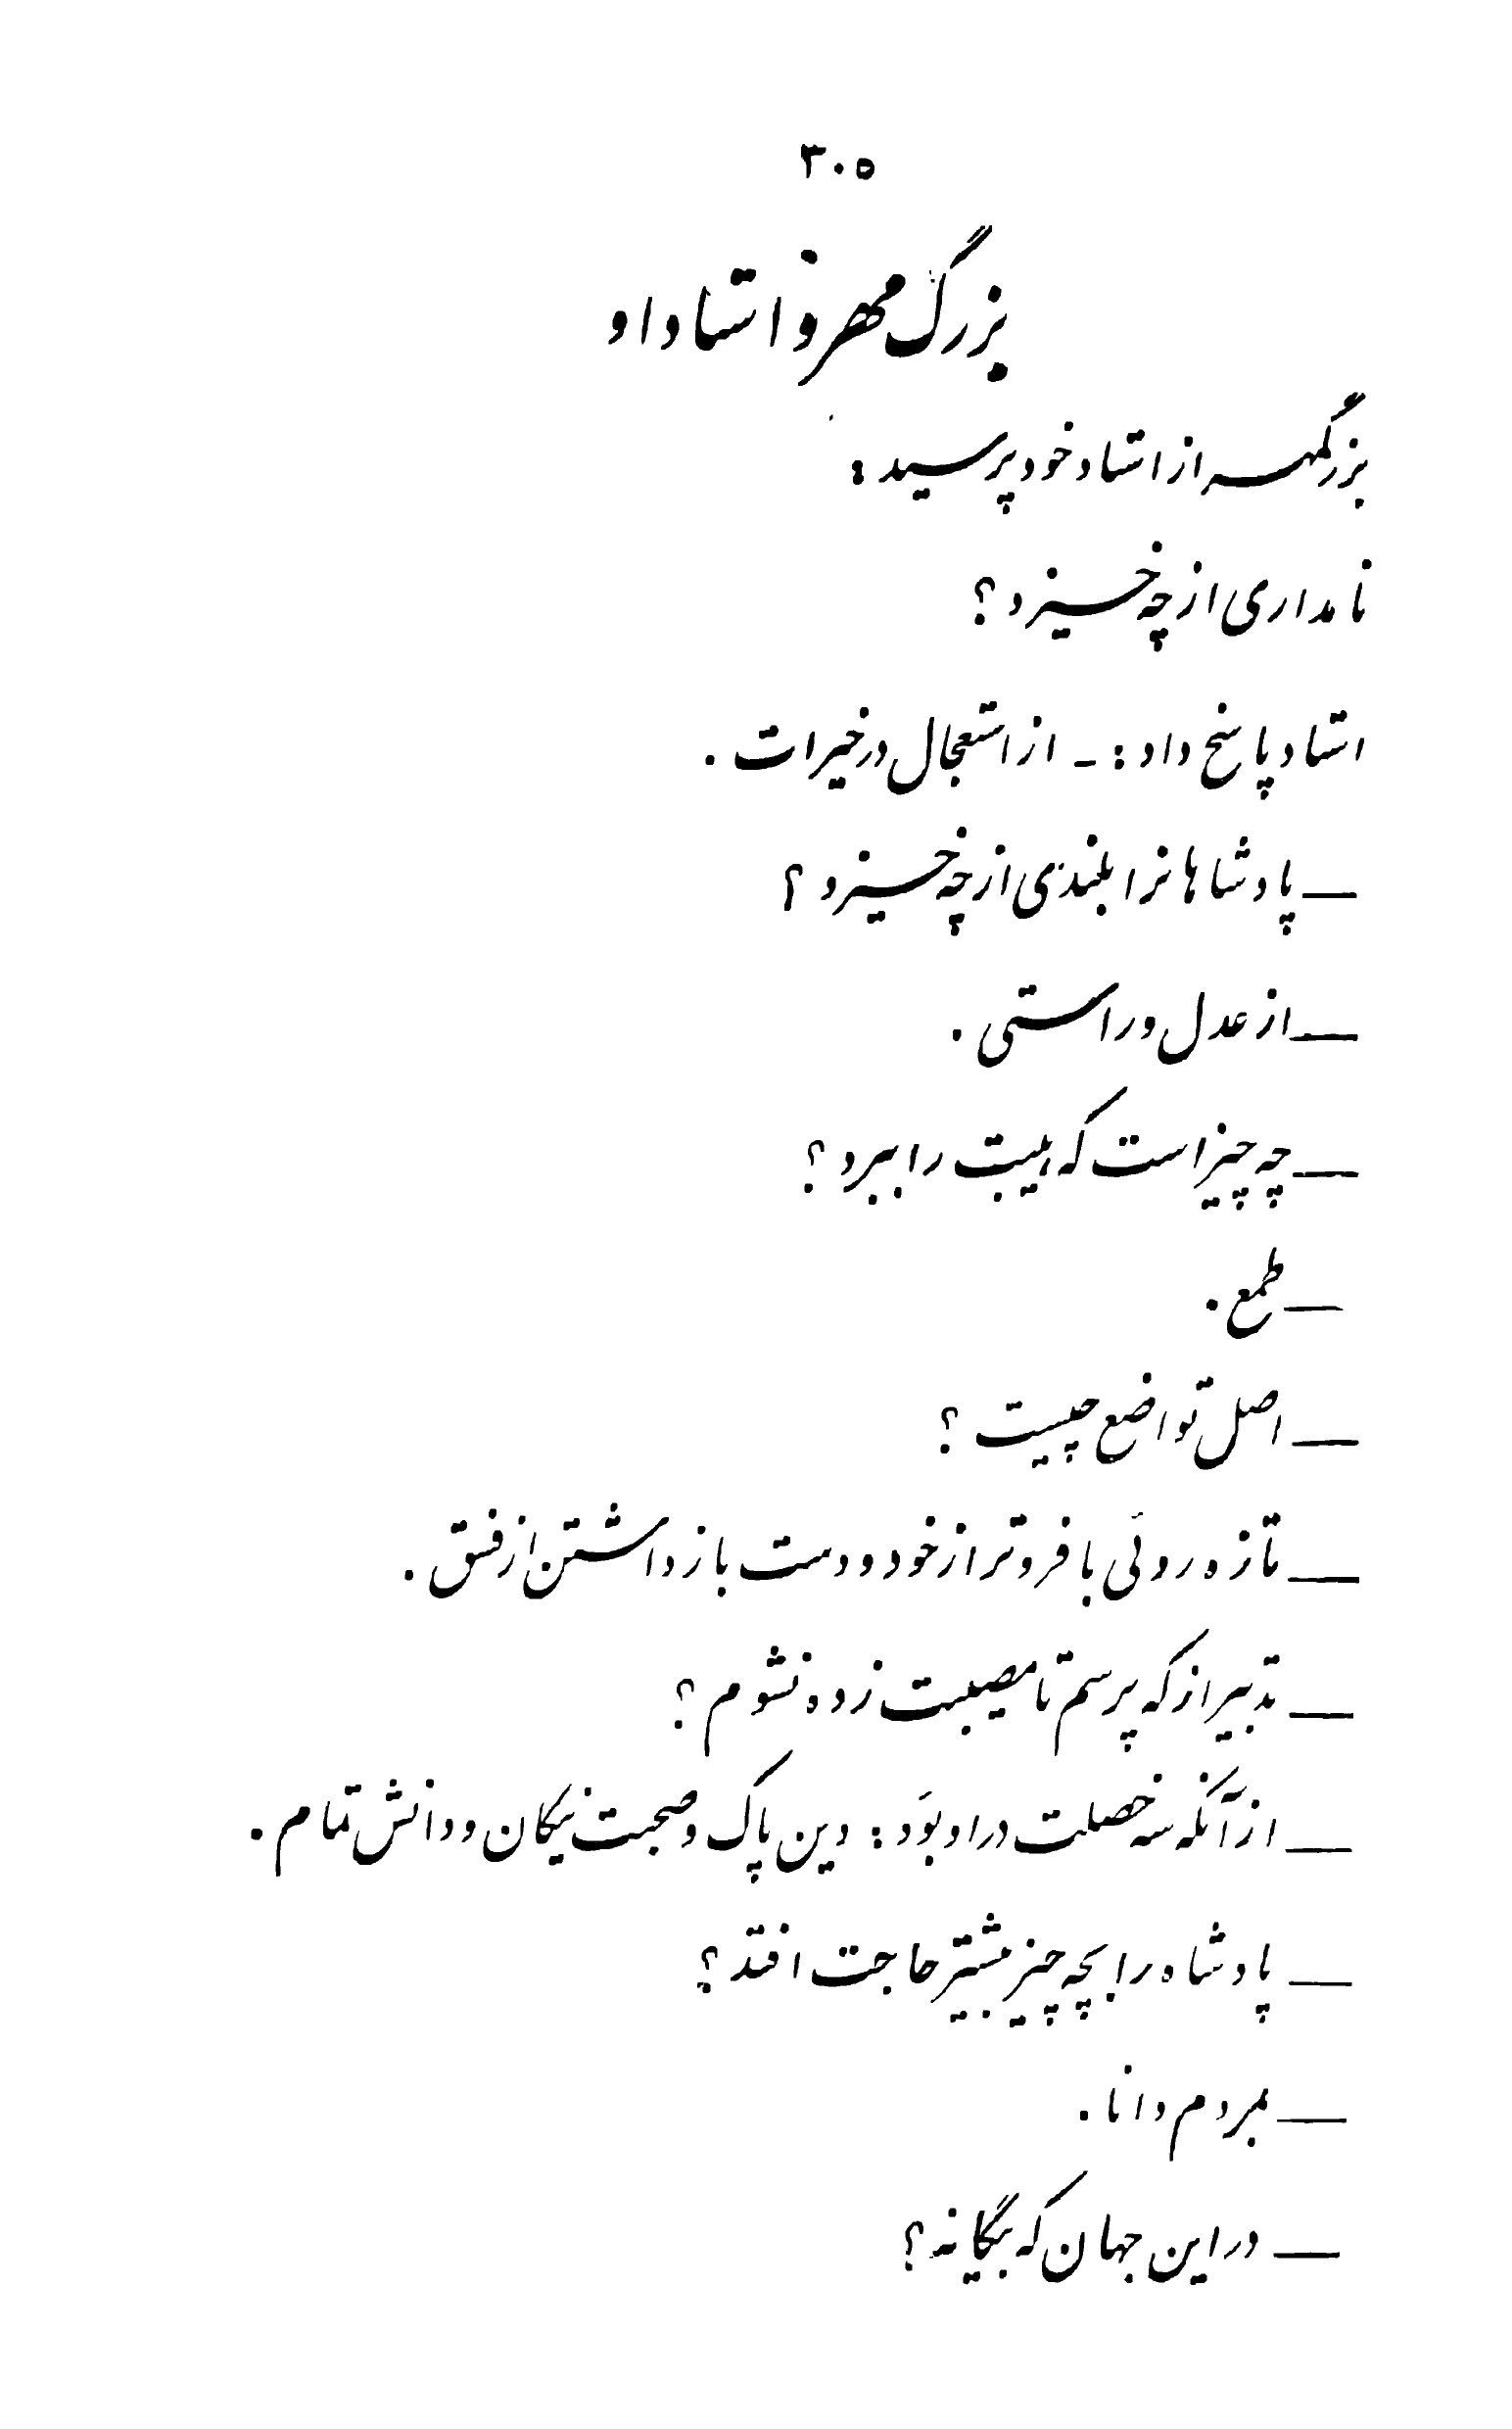 ۳۰۵
بزرگ مهر و استاد او
بزرگمهر از استاد خود پرسید :
نامداری از چه خیزد ؟
استاد پاسخ داد : - از استعجال در خیرات .
— پادشاهانرا بلندی از چه خیزد ؟
— از عدل و راستی .
— چه چیز است که هیبت را ببرد ؟
— طمع .
— اصل تواضع چیست ؟
— تازه روئی با فروتر از خود و دست باز داشتن از فسق .
— تدبیر از که پرسم تا مصیبت زده نشوم ؟
— از آنکه سه خصلت در او بوَد : دین پاک و صحبت نیکان و دانش تمام .
— پادشاه را بچه چیز بیشتر حاجت افتد ؟
— بمردم دانا .
— در این جهان که بیگانه ؟